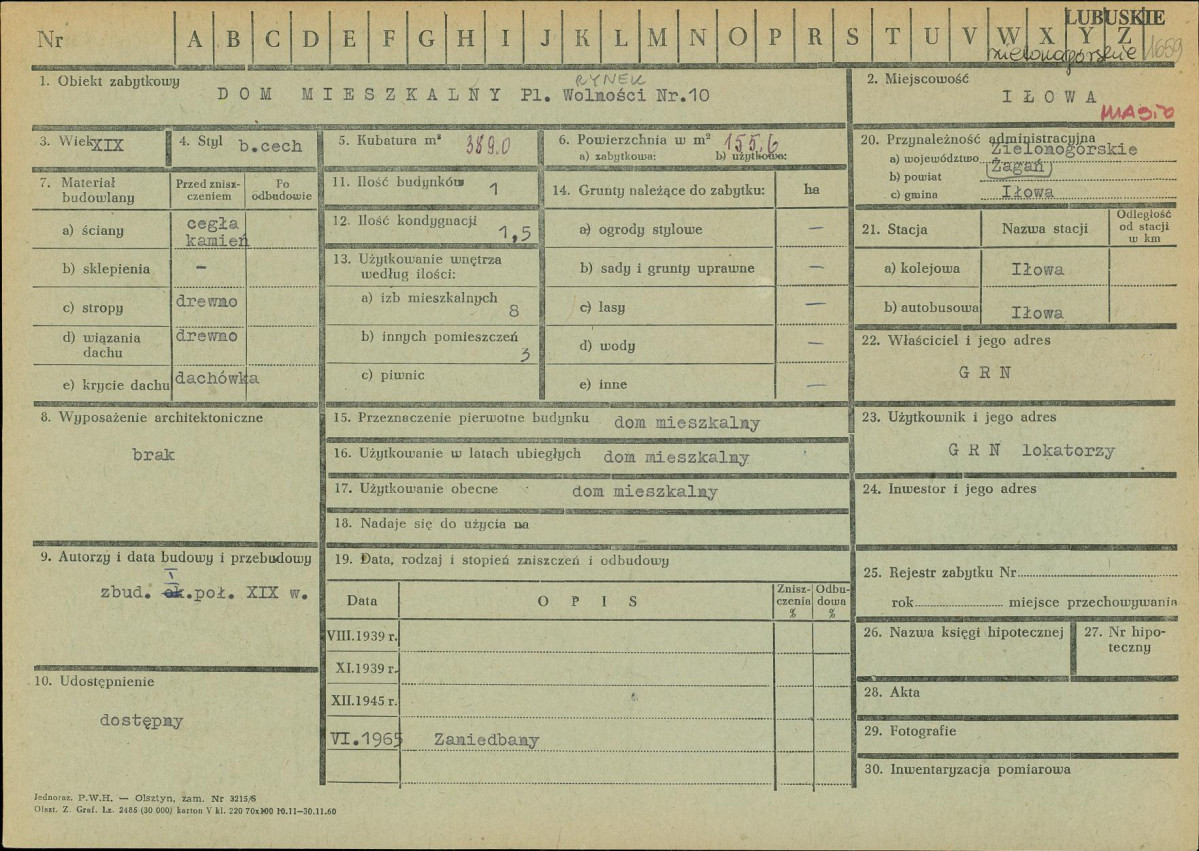 LUBUSKIE
Nr A B C D E F G H I J K L M N O P R S T U V W X Y Z
zielonogórskie 1659
1. Obiekt zabytkowy
RYNEK
DOM MIESZKALNY Pl. Wolności Nr.10
2. Miejscowość
IŁOWA
MIASTO
3. Wiek XIX
4. Styl b.cech
5. Kubatura m³ 389.0
6. Powierzchnia w m² 155,6
a) zabytkowa: b) użytkowa:
20. Przynależność administracyjna
a) województwo Zielonogórskie
b) powiat Żagań
c) gmina Iłowa
7. Materiał budowlany
Przed znisz-
czeniem
Po
odbudowie
a) ściany cegła
kamień
b) sklepienia –
c) stropy drewno
d) wiązania
dachu drewno
e) krycie dachu dachówka
11. Ilość budynków 1
12. Ilość kondygnacji 1,5
13. Użytkowanie wnętrza
według ilości:
a) izb mieszkalnych 8
b) innych pomieszczeń 3
c) piwnic
14. Grunty należące do zabytku: ha
a) ogrody stylowe —
b) sady i grunty uprawne —
c) lasy —
d) wody —
e) inne —
21. Stacja Nazwa stacji
Odległość
od stacji
w km
a) kolejowa Iłowa
b) autobusowa Iłowa
22. Właściciel i jego adres
G R N
8. Wyposażenie architektoniczne
brak
15. Przeznaczenie pierwotne budynku dom mieszkalny
16. Użytkowanie w latach ubiegłych dom mieszkalny
17. Użytkowanie obecne dom mieszkalny
18. Nadaje się do użycia na
23. Użytkownik i jego adres
G R N lokatorzy
24. Inwestor i jego adres
9. Autorzy i data budowy i przebudowy
I
zbud. ok.poł. XIX w.
19. Data, rodzaj i stopień zniszczeń i odbudowy
Data O P I S
Znisz-
czenia
%
Odbu-
dowa
%
VIII.1939 r.
XI.1939 r.
XII.1945 r.
VI.1965 Zaniedbany
25. Rejestr zabytku Nr
rok miejsce przechowywania
26. Nazwa księgi hipotecznej
27. Nr hipo-
teczny
10. Udostępnienie
dostępny
28. Akta
29. Fotografie
30. Inwentaryzacja pomiarowa
Jednoraz. P.W.H. — Olsztyn, zam. Nr 3215/S
Olszt. Z. Graf. Lz. 2485 (30 000) karton V kl. 220 70x100 10.11—30.11.60